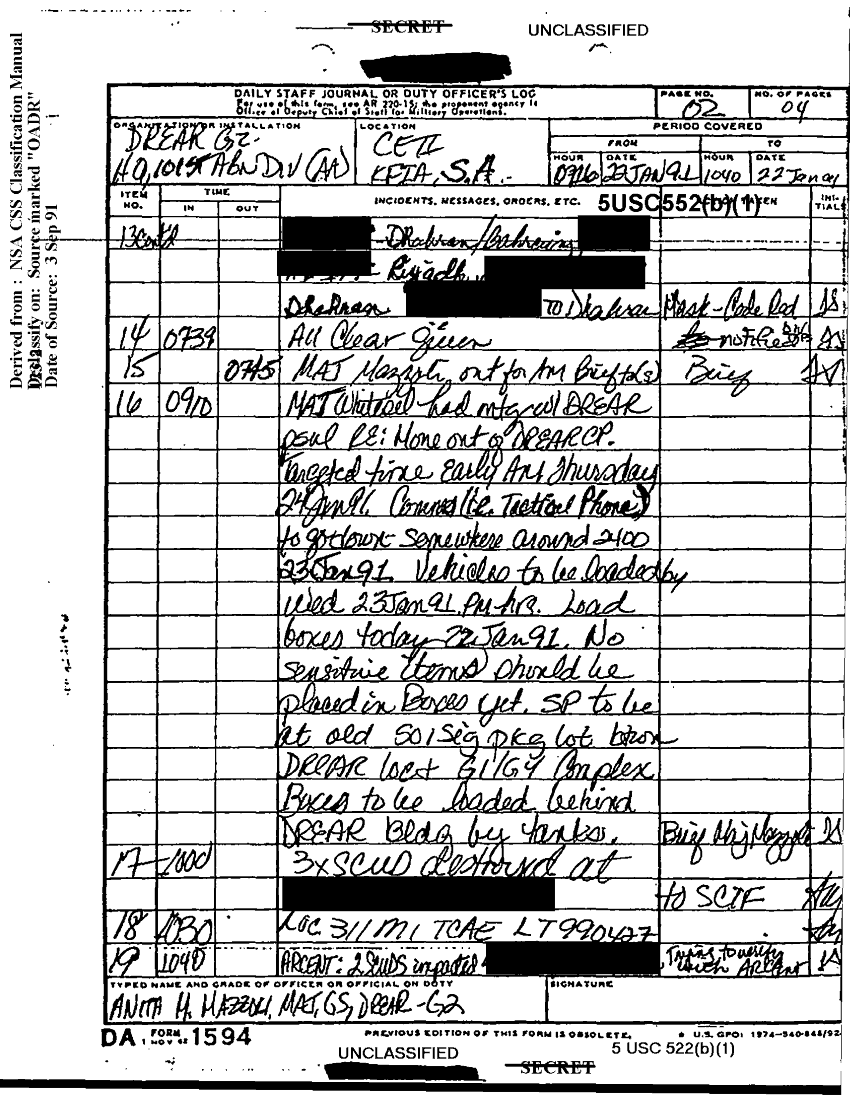 SECRET UNCLASSIFIED
Derived from : NSA CSS Classification Manual
Declassify on: Source marked "OADR"
Date of Source: 3 Sep 91
DAILY STAFF JOURNAL OR DUTY OFFICER'S LOG
For use of this form, see AR 220-15; the proponent agency is
Office of Deputy Chief of Staff for Military Operations.
PAGE NO.
02
NO. OF PAGES
04
ORGANIZATION OR INSTALLATION
DREAR G2
HQ, 101st ABN DIV (AA)
LOCATION
CE II
KFIA, S.A.
PERIOD COVERED
FROM TO
HOUR DATE HOUR DATE
22JAN91 1040 22 Jan 91
ITEM NO. TIME IN OUT INCIDENTS, MESSAGES, ORDERS, ETC. 5USC552(b)(1) TAKEN INITIALS
13 Cont'd - Dhahran/
Riyadh,
Dhahran TO Dhahran Mask - Code Red
14 0739 All Clear given notified
15 0745 MAJ Mazzoli out for AM Brief Brief
16 0910 MAJ had mtg w/ DREAR
psnl RE: Move out of DREAR CP.
Targeted time Early AM Thursday
24 Jan 91. Comms (i.e. Tactical Phone)
to go down somewhere around 2400
23 Jan 91. Vehicles to be loaded by
Wed 23 Jan 91. PM hrs. Load
boxes today 22 Jan 91. No
sensitive items should be
placed in Boxes yet. SP to be
at old 501 Sig pkg lot btwn
DREAR loc & G1/G4 Complex
Boxes to be loaded behind
DREAR Bldg by tanks. Brief Maj Mazzoli
17 1000 3xSCUD destroyed at
to SCIF
18 1030 Loc 311 MI TCAE LT990427
19 1040 ARCENT: 2 SCUDS impacted Trying to verify
with ARCENT
TYPED NAME AND GRADE OF OFFICER OR OFFICIAL ON DUTY
ANITA M. MAZZOLI, MAJ, GS, DREAR-G2
SIGNATURE
DA FORM 1 NOV 62 1594
PREVIOUS EDITION OF THIS FORM IS OBSOLETE.
U.S. GPO: 1974-540-845/92
UNCLASSIFIED
5 USC 522(b)(1)
SECRET